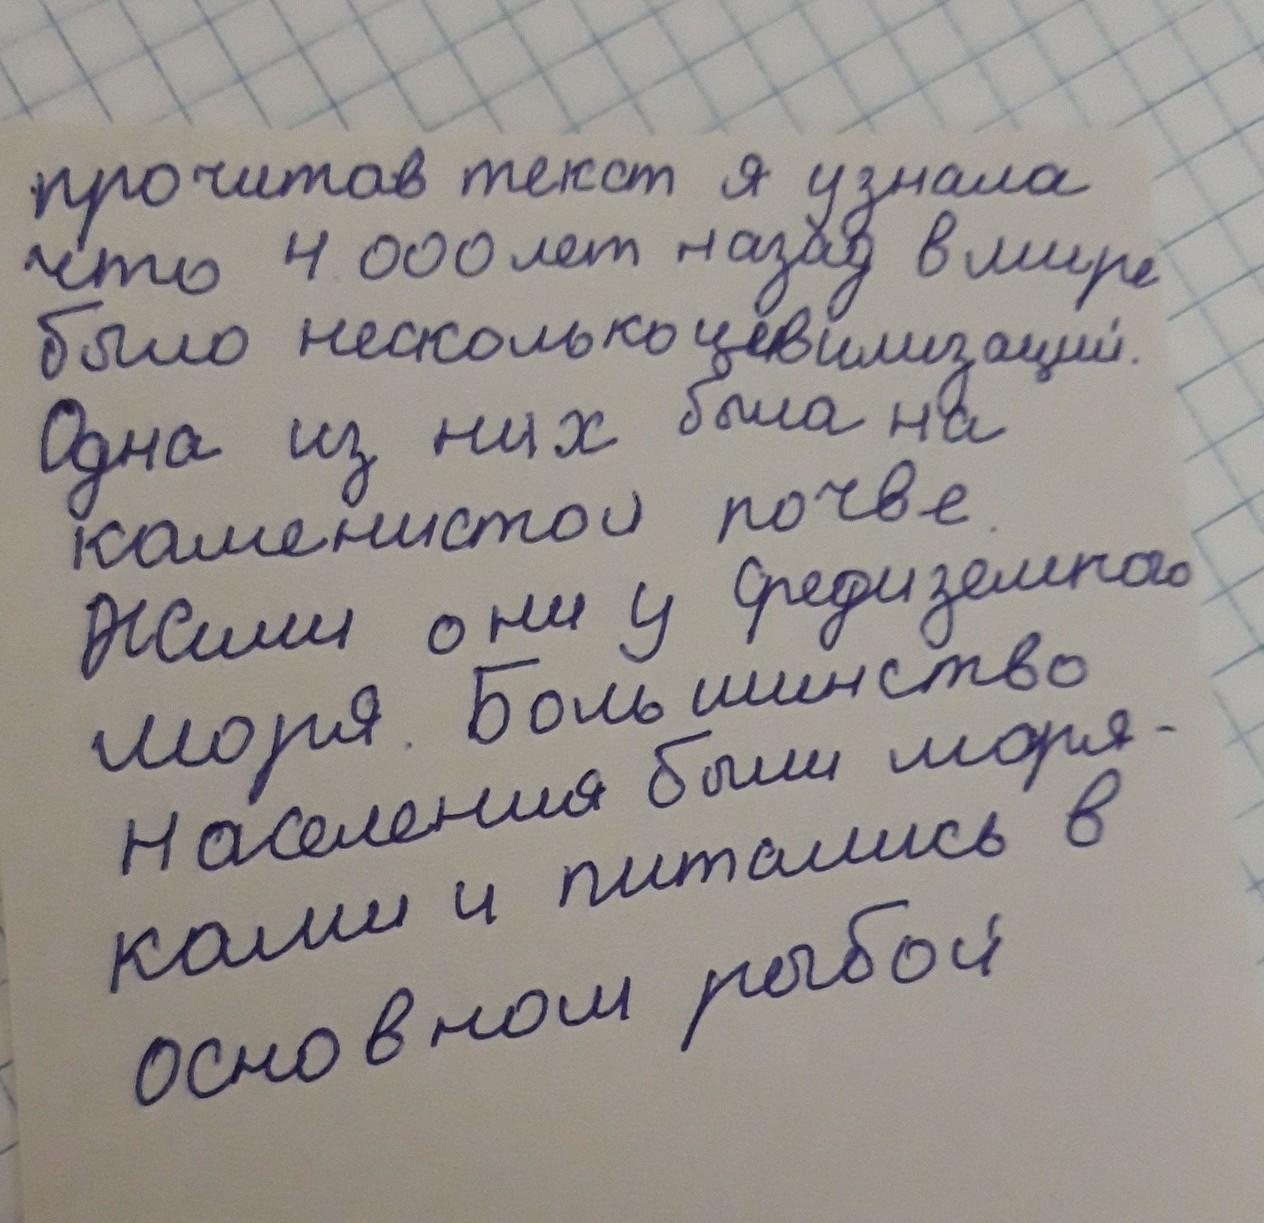 прочитав текст я узнала
что 4.000 лет назад в мире
было несколько цевилизаций.
Одна из них была на
каменистой почве.
Жили они у Средиземного
моря. Большинство
населения были моря-
ками и питались в
основном рыбой